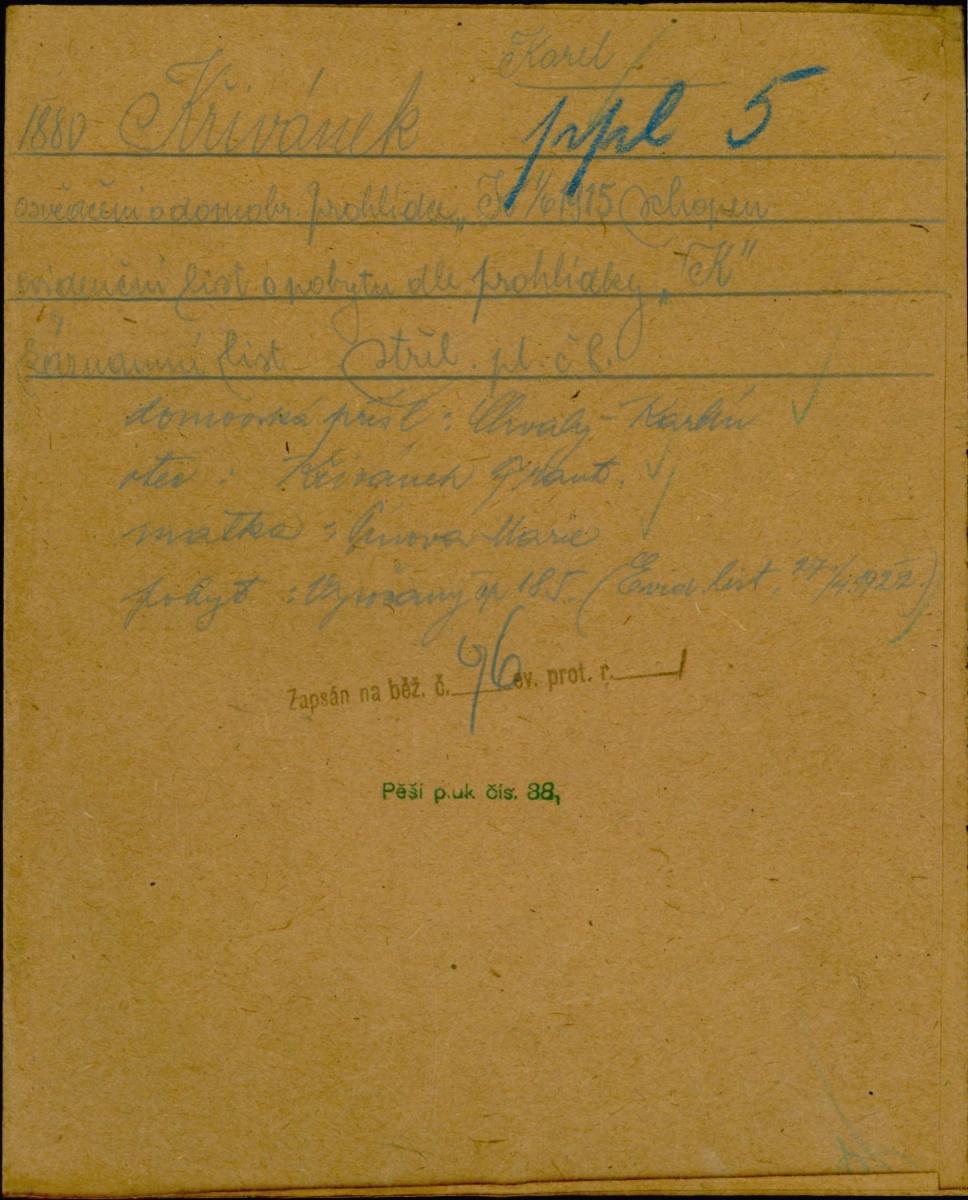 Karel
1880 Křivánek ppl 5
osvědčení o domobr. prohlídce „K" 1/6 1915 schopen
evidenční list o pobytu dle prohlídky „K"
záznamní list střel. pl. č. 8.
domovská přísl : Chvaly - Karlín
otec : Křivánek Frant.
matka : Marie
pobyt : Vysočany čp 185. (Evid. list. 27./4. 1922.)
Zapsán na běž. č. 96 ev. prot. r.
Pěší p.uk čís. 38,